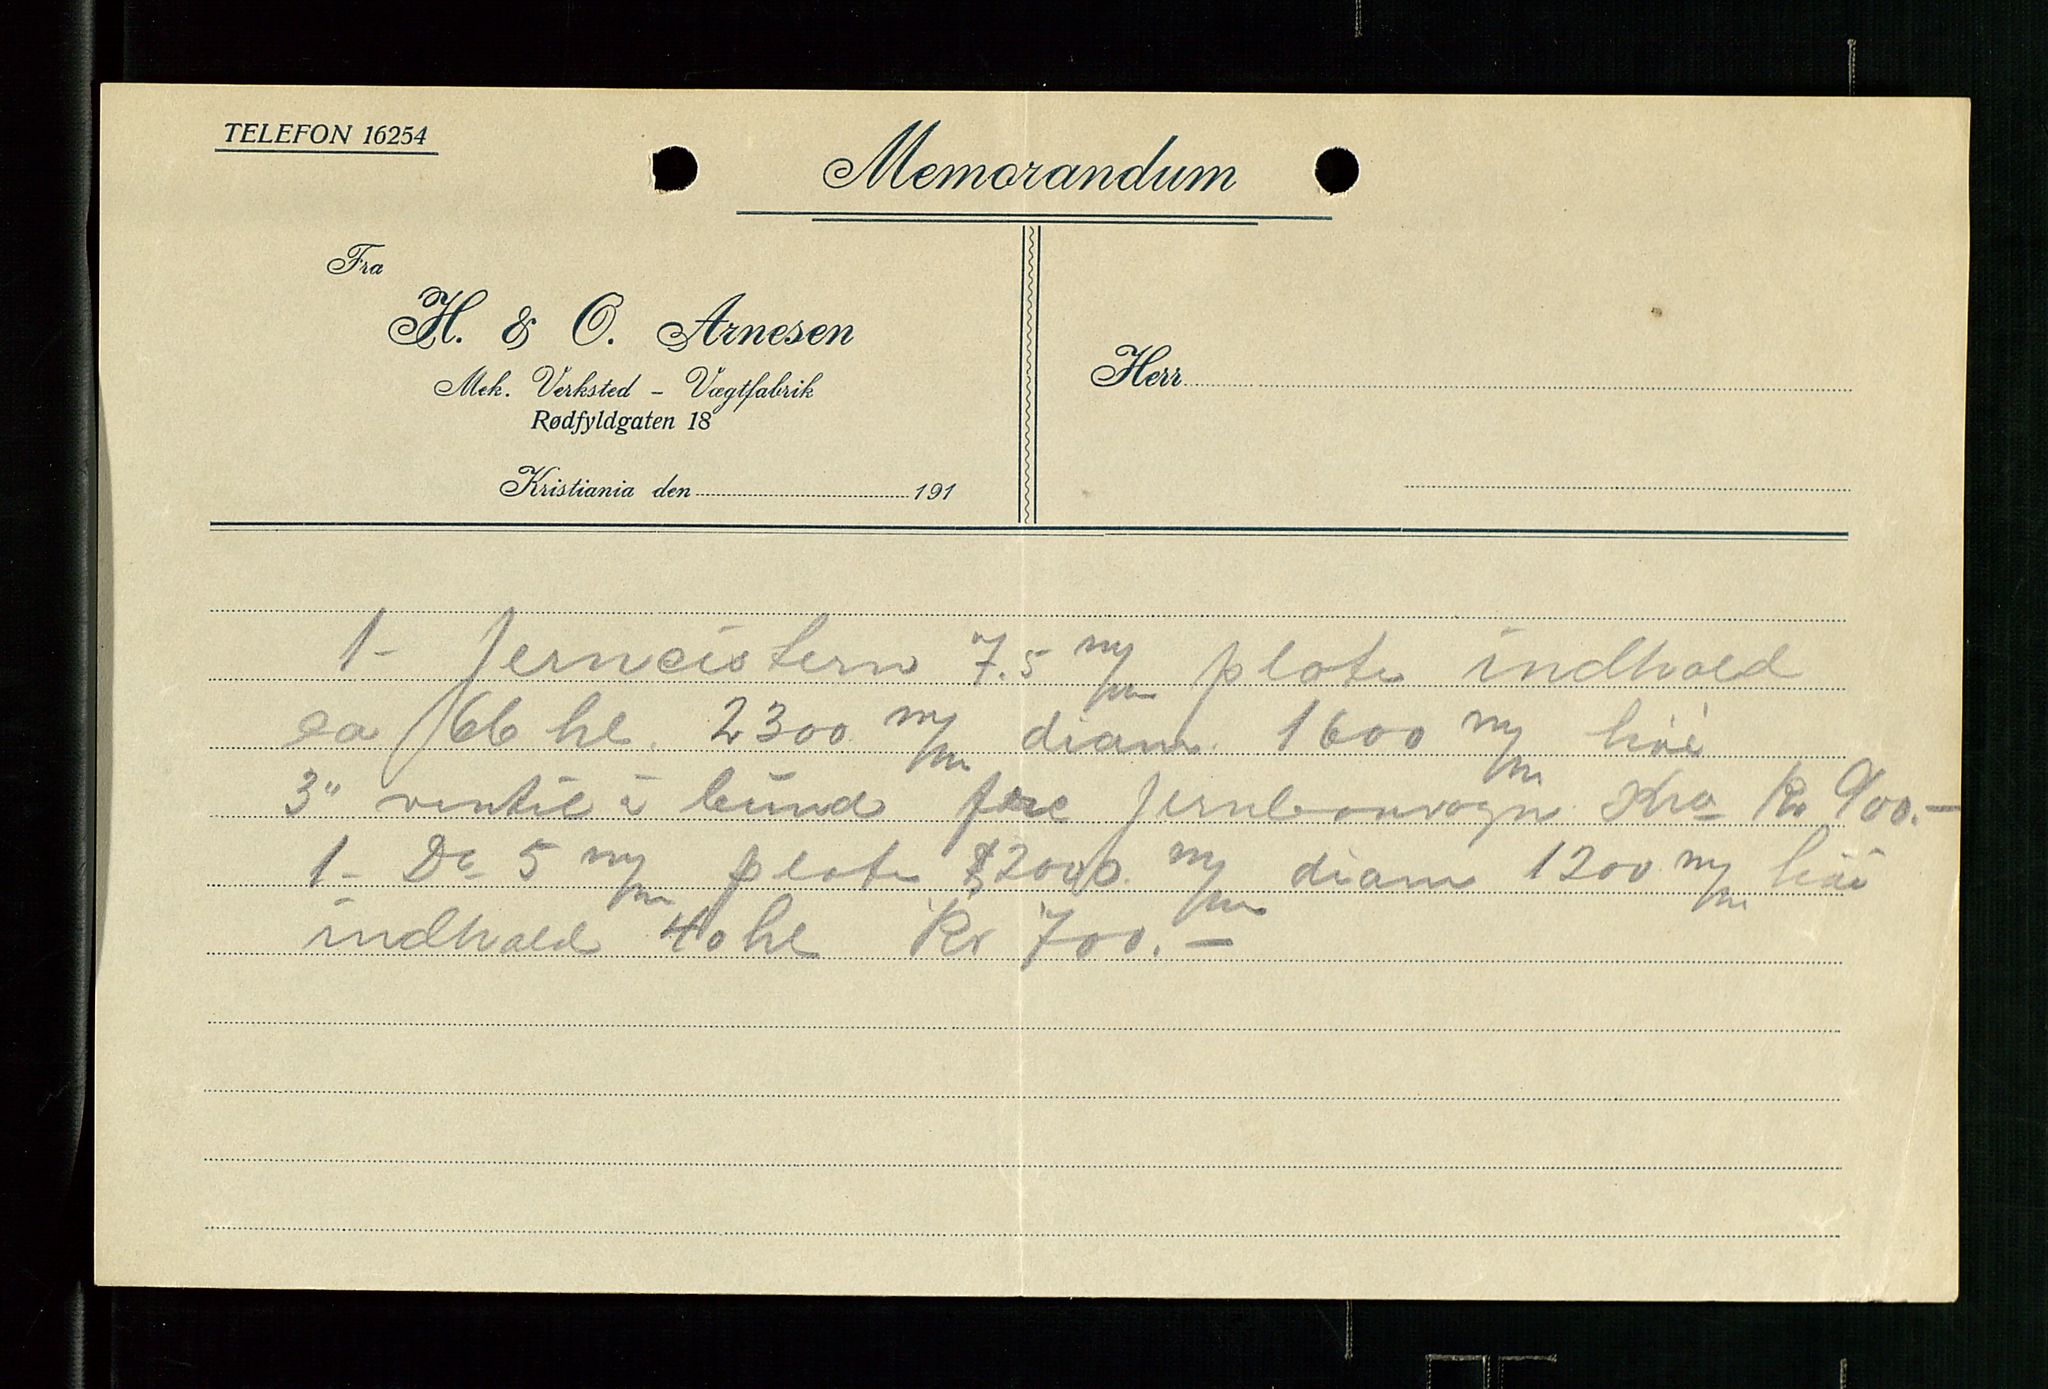 TELEFON 16254
Memorandum
Fra
H. & O. Arnesen
Mek. Verksted - Vægtfabrik
Rødfyldgaten 18
Kristiania den 191
Herr
1- Jerncistern 7.5 m/m plate indhold
ca 66 hl. 2300 m/m diam. 1600 m/m høi
3" ventil i bund frit Jernbanvogn Kra Kr 900.-
1- Do 5 m/m plate 2000 m/m diam 1200 m/m høi
indhold 40 hl Kr 700.-